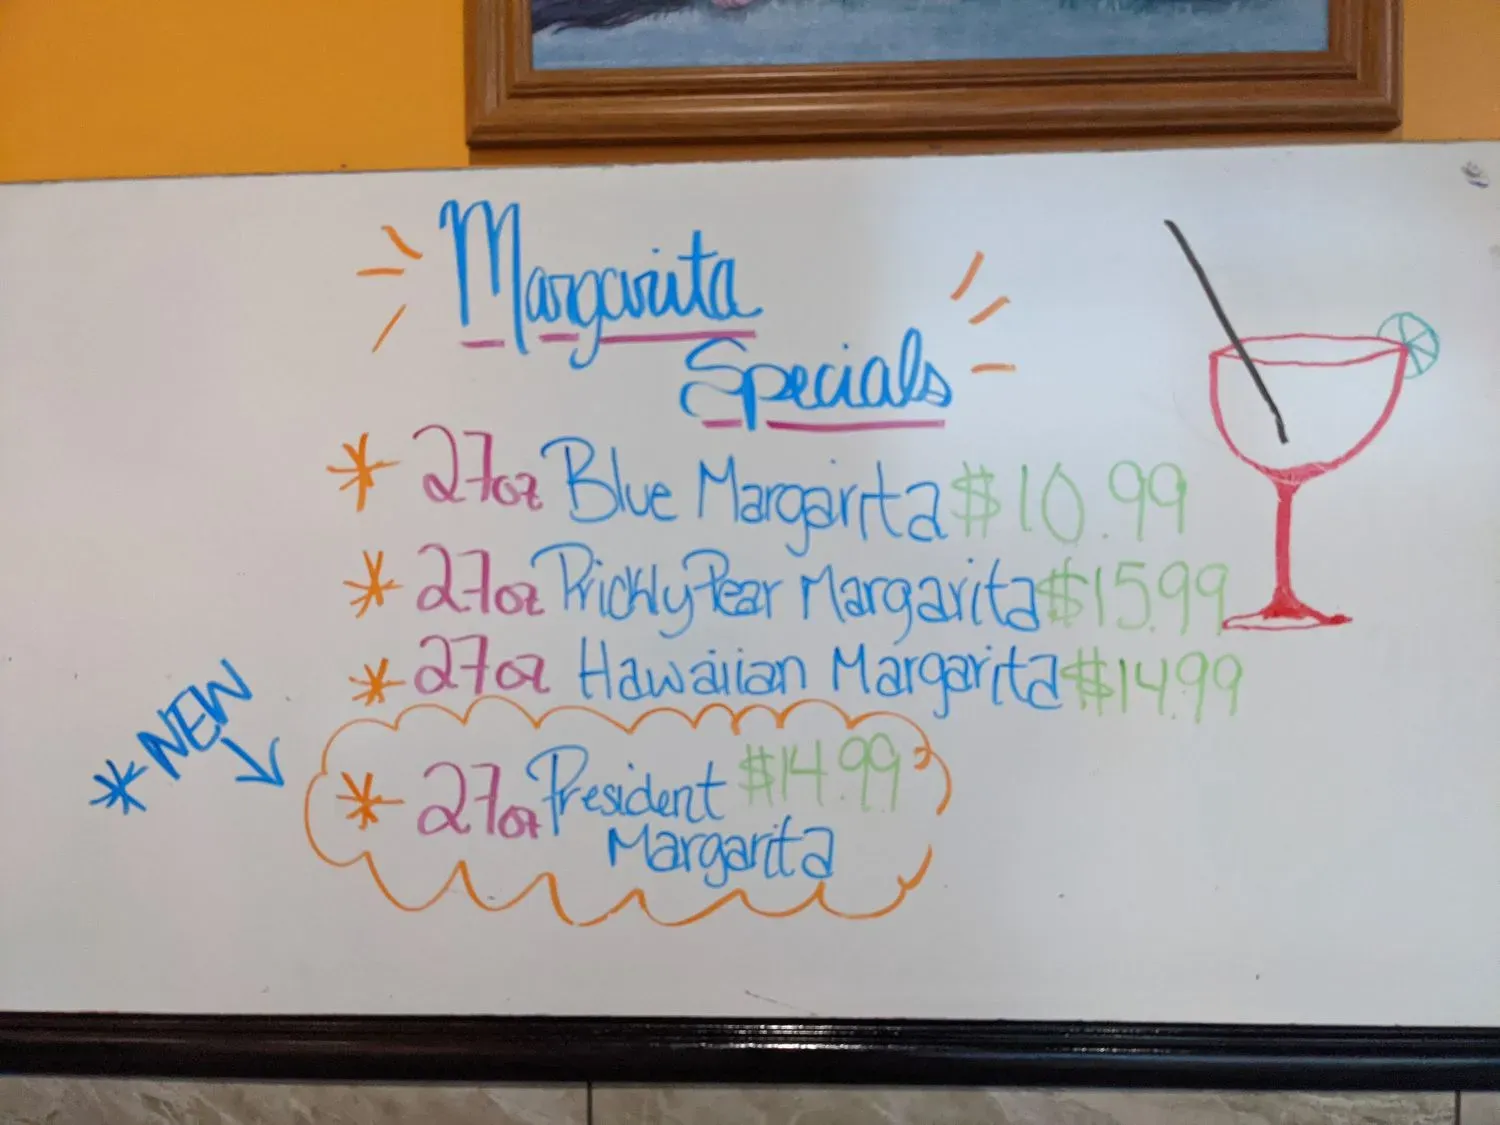 Margarita
Specials
* 27oz Blue Margarita $10.99
* 27oz Prickly Pear Margarita $15.99
* 27oz Hawaiian Margarita $14.99
* NEW
* 27oz President $14.99
Margarita